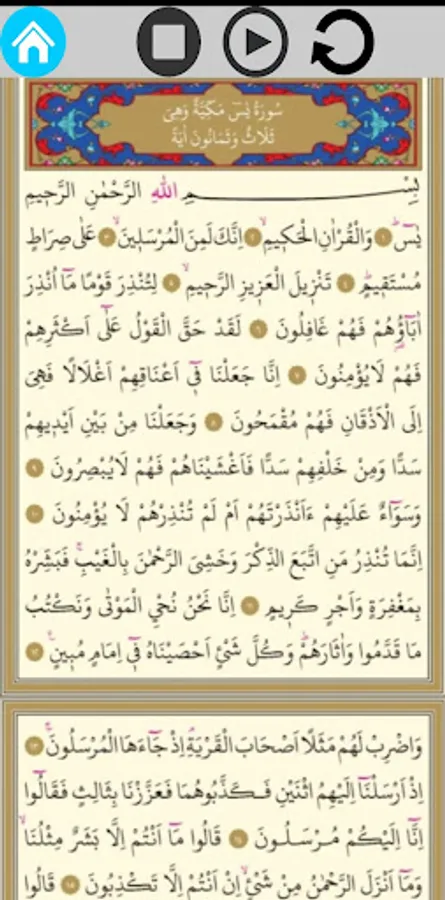 سُورَةُ يٰسٓ مَكِّيَّةٌ وَهِىَ
ثَلَاثٌ وَثَمَانُونَ اٰيَةً
بِسْمِ اللهِ الرَّحْمٰنِ الرَّحٖيمِ
يٰسٓ ﴿١﴾ وَالْقُرْاٰنِ الْحَكٖيمِ ﴿٢﴾ اِنَّكَ لَمِنَ الْمُرْسَلٖينَ ﴿٣﴾ عَلٰى صِرَاطٍ
مُسْتَقٖيمٍ ﴿٤﴾ تَنْزٖيلَ الْعَزٖيزِ الرَّحٖيمِ ﴿٥﴾ لِتُنْذِرَ قَوْمًا مَٓا اُنْذِرَ
اٰبَٓاؤُ۬هُمْ فَهُمْ غَافِلُونَ ﴿٦﴾ لَقَدْ حَقَّ الْقَوْلُ عَلٰٓى اَكْثَرِهِمْ
فَهُمْ لَا يُؤْمِنُونَ ﴿٧﴾ اِنَّا جَعَلْنَا فٖٓى اَعْنَاقِهِمْ اَغْلَالًا فَهِىَ
اِلَى الْاَذْقَانِ فَهُمْ مُقْمَحُونَ ﴿٨﴾ وَجَعَلْنَا مِنْ بَيْنِ اَيْدٖيهِمْ
سَدًّا وَمِنْ خَلْفِهِمْ سَدًّا فَاَغْشَيْنَاهُمْ فَهُمْ لَا يُبْصِرُونَ ﴿٩﴾
وَسَوَٓاءٌ عَلَيْهِمْ ءَاَنْذَرْتَهُمْ اَمْ لَمْ تُنْذِرْهُمْ لَا يُؤْمِنُونَ ﴿١٠﴾
اِنَّمَا تُنْذِرُ مَنِ اتَّبَعَ الذِّكْرَ وَخَشِىَ الرَّحْمٰنَ بِالْغَيْبِ فَبَشِّرْهُ
بِمَغْفِرَةٍ وَاَجْرٍ كَرٖيمٍ ﴿١١﴾ اِنَّا نَحْنُ نُحْيِ الْمَوْتٰى وَنَكْتُبُ
مَا قَدَّمُوا وَاٰثَارَهُمْ وَكُلَّ شَىْءٍ اَحْصَيْنَاهُ فٖٓى اِمَامٍ مُبٖينٍ ﴿١٢﴾
وَاضْرِبْ لَهُمْ مَثَلًا اَصْحَابَ الْقَرْيَةِ اِذْ جَٓاءَهَا الْمُرْسَلُونَ ﴿١٣﴾
اِذْ اَرْسَلْنَٓا اِلَيْهِمُ اثْنَيْنِ فَكَذَّبُوهُمَا فَعَزَّزْنَا بِثَالِثٍ فَقَالُٓوا
اِنَّٓا اِلَيْكُمْ مُرْسَلُونَ ﴿١٤﴾ قَالُوا مَٓا اَنْتُمْ اِلَّا بَشَرٌ مِثْلُنَا
وَمَٓا اَنْزَلَ الرَّحْمٰنُ مِنْ شَىْءٍ اِنْ اَنْتُمْ اِلَّا تَكْذِبُونَ ﴿١٥﴾ قَالُوا